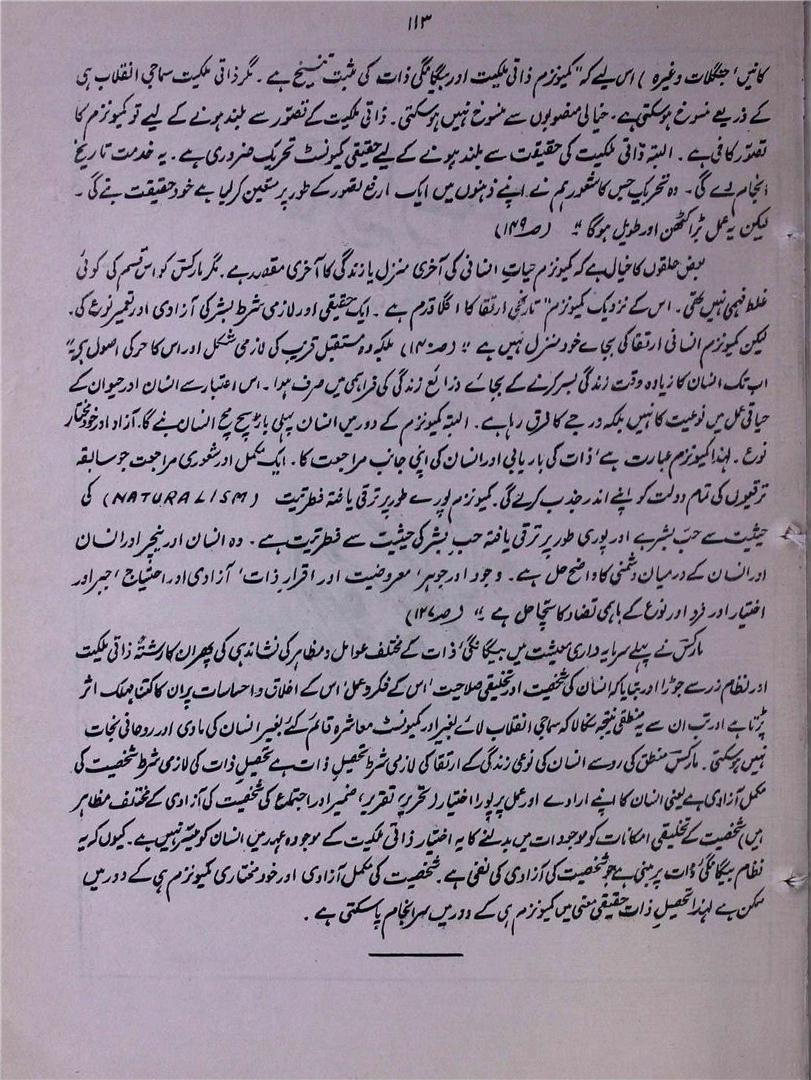 ۱۱۳
کانیں، جنگلات وغیرہ) اس لیے کہ "کمیونزم ذاتی ملکیت اور بیگانگی ذات کی مثبت تنسیخ ہے۔ مگر ذاتی ملکیت سماجی انقلاب ہی
کے ذریعے منسوخ ہوسکتی ہے۔ خیالی منصوبوں سے منسوخ نہیں ہوسکتی۔ ذاتی ملکیت کے تصوّر سے بلند ہونے کے لیے تو کمیونزم کا
تصوّر کافی ہے۔ البتہ ذاتی ملکیت کی حقیقت سے بلند ہونے کے لیے حقیقی کمیونسٹ تحریک ضروری ہے۔ یہ خدمت تاریخ
انجام دے گی۔ وہ تحریک جس کا شعور ہم نے اپنے ذہنوں میں ایک ارفع تصور کے طور پر متعین کرلیا ہے خود حقیقت بنے گی۔
لیکن یہ عمل بڑا کٹھن اور طویل ہوگا۔" (ص۱۴۹)
بعض حلقوں کا خیال ہے کہ کمیونزم حیاتِ انسانی کی آخری منزل یا زندگی کا آخری مقصد ہے۔ مگر مارکس کو اس قسم کی کوئی
غلط فہمی نہیں تھی۔ اس کے نزدیک کمیونزم "تاریخی ارتقا کا اگلا قدم ہے۔ ایک حقیقی اور لازمی شرط بشر کی آزادی اور تعمیرِ نوع کی۔
لیکن کمیونزم انسانی ارتقا کی بجائے خود منزل نہیں ہے" (ص۱۴۰) بلکہ وہ مستقبل قریب کی لازمی شکل اور اس کا حرکی اصول ہے"
اب تک انسان کا زیادہ وقت زندگی بسر کرنے کے بجائے ذرائع زندگی کی فراہمی میں صرف ہوا۔ اس اعتبار سے انسان اور حیوان کے
حیاتی عمل میں نوعیت کا نہیں بلکہ درجے کا فرق رہا ہے۔ البتہ کمیونزم کے دور میں انسان پہلی بار سچ مچ انسان بنے گا۔ آزاد اور خود مختار
نوع۔ لہٰذا کمیونزم عبارت ہے، ذات کی باریابی اور انسان کی اپنی جانب مراجعت کا۔ ایک مکمل اور شعوری مراجعت جو سابقہ
ترقیوں کی تمام دولت کو اپنے اندر جذب کرلے گی۔ کمیونزم پورے طور پر ترقی یافتہ فطرتیت (NATURALISM) کی
حیثیت سے حبِ بشر ہے اور پوری طور پر ترقی یافتہ حب بشر کی حیثیت سے فطرتیت ہے۔ وہ انسان اور نیچر اور انسان
اور انسان کے درمیان دشمنی کا واضح حل ہے۔ وجود اور جوہر، معروضیت اور اقرارِ ذات، آزادی اور احتیاج، جبر اور
اختیار اور فرد اور نوع کے باہمی تضاد کا سچا حل ہے۔" (ص۱۲۷)
مارکس نے پہلے سرمایہ داری معیشت میں بیگانگیٔ ذات کے مختلف عوامل و مظاہر کی نشاندہی کی پھر ان کا رشتہ ذاتی ملکیت
اور نظام زر سے جوڑا اور بتایا کہ انسان کی شخصیت اور تخلیقی صلاحیت، اس کے فکر و عمل، اس کے اخلاق و احساسات پر ان کا کتنا مہلک اثر
پڑتا ہے اور تب ان سے یہ منطقی نتیجہ نکالا کہ سماجی انقلاب لائے بغیر اور کمیونسٹ معاشرہ قائم کئے بغیر انسان کی مادی اور روحانی نجات
نہیں ہوسکتی۔ مارکسی منطق کی رو سے انسان کی نوعی زندگی کے ارتقا کی لازمی شرط تحصیلِ ذات ہے تحصیلِ ذات کی لازمی شرط شخصیت کی
مکمل آزادی ہے یعنی انسان کا اپنے ارادے اور عمل پر پورا اختیار (تحریر، تقریر، ضمیر اور اجتماع کی شخصیت کی آزادی کے مختلف مظاہر
ہیں) شخصیت کے تخلیقی امکانات کو موجودات میں بدلنے کا یہ اختیار ذاتی ملکیت کے موجودہ عہد میں انسان کو میسّر نہیں ہے۔ کیوں کہ یہ
نظام بیگانگیٔ ذات پر مبنی ہے جو شخصیت کی آزادی کی نفی ہے۔ شخصیت کی مکمل آزادی اور خود مختاری کمیونزم ہی کے دور میں
ممکن ہے لہٰذا تحصیلِ ذات حقیقی معنی میں کمیونزم ہی کے دور میں سرانجام پاسکتی ہے۔